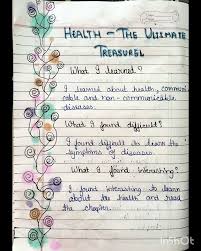 HEALTH - THE ULTIMATE
TREASURE!
What I learned?
I learned about health, communi-
cable and non-communicable
diseases.
What I found difficult?
I found difficult to learn the
symptoms of diseases.
What I found interesting?
I found interesting to learn
about the health and read
the chapter.
InShOt